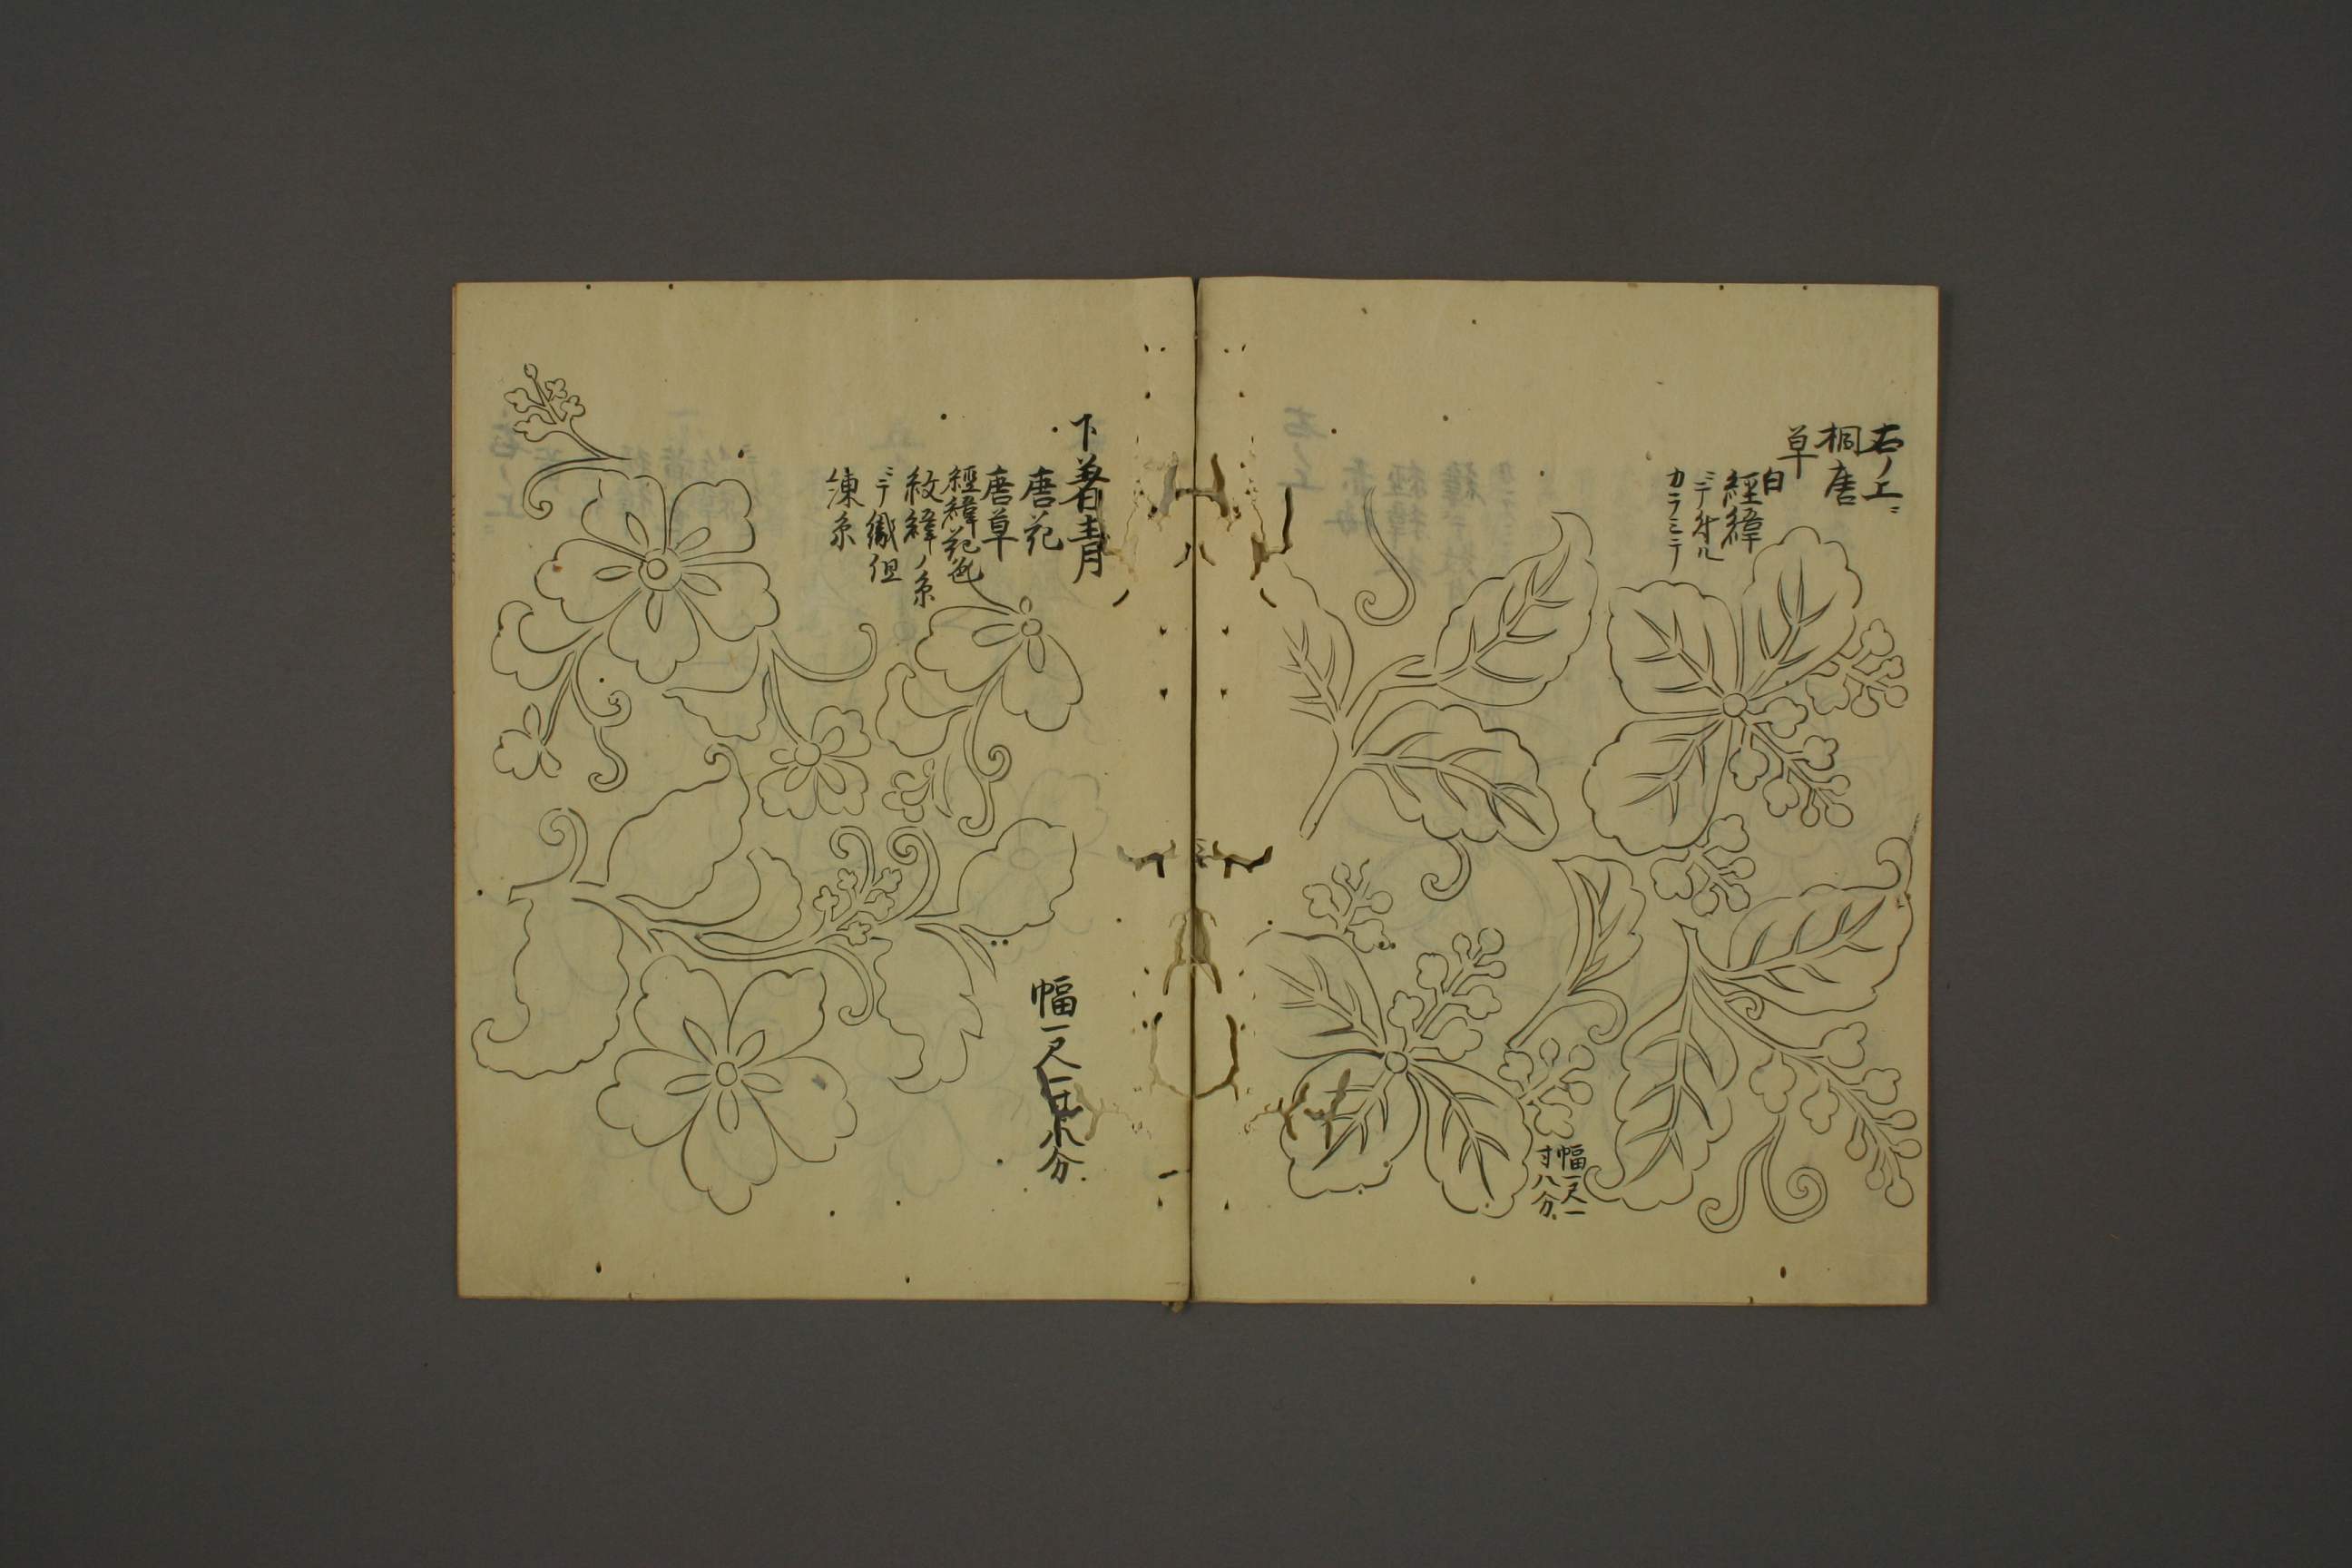 右ノ上ニ
桐唐
草
白
経緯
ニテ
カラミテ
幅一尺一
寸八分
下着青
唐花
唐草
經緯花色
紋緯ノ糸
ニテ織但
練糸
幅一尺一寸八分